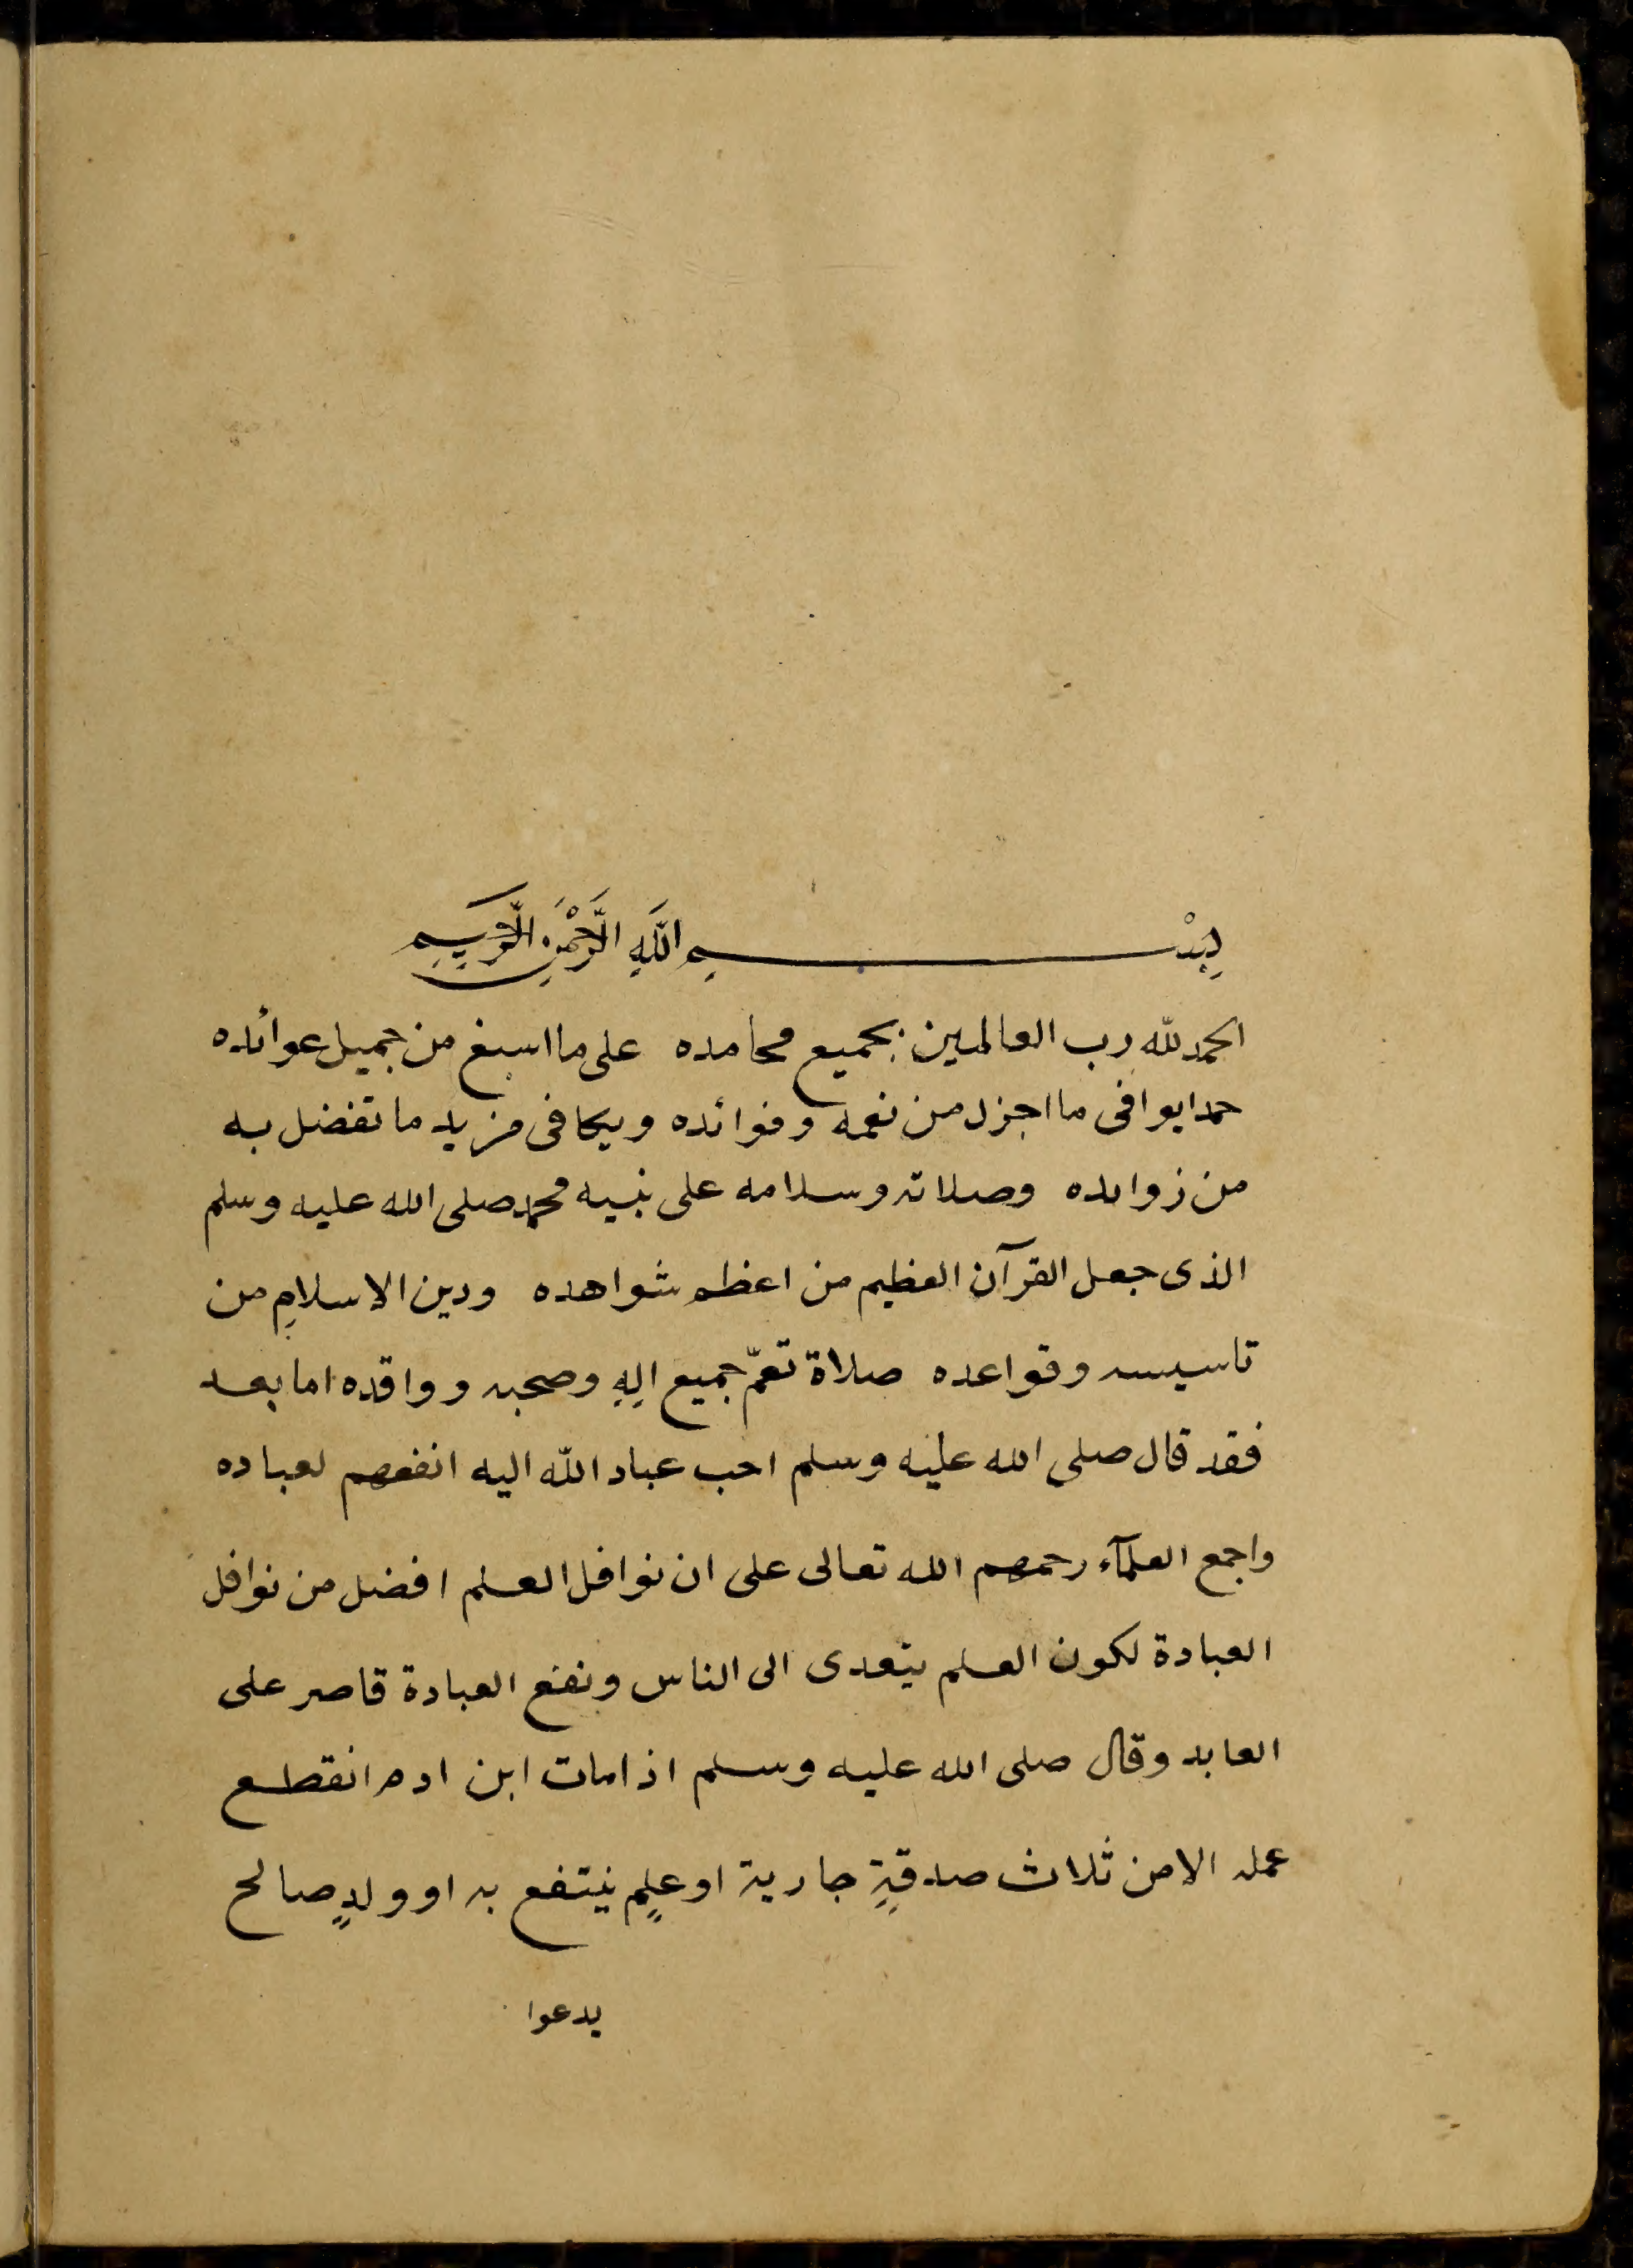 بِسْمِ اللَّهِ الرَّحْمَنِ الرَّحِيمِ
الحمد لله رب العالمين بجميع محامده على ما اسبغ من جميل عوائده
حمدا يوافى ما اجزل من نعمه وفوائده ويكافى مزيد ما تفضل به
من زوايده وصلاته وسلامه على نبيه محمد صلى الله عليه وسلم
الذى جعل القرآن العظيم من اعظم شواهده ودين الاسلامِ من
تاسيسه وقواعده صلاة تعمّ جميع الِهِ وصحبه ووافده اما بعد
فقد قال صلى الله عليه وسلم احب عباد اللّه اليه انفعهم لعباده
واجمع العلمآء رحمهم الله تعالى على ان نوافل العلم افضل من نوافل
العبادة لكون العلم يتعدى الى الناس ونفع العبادة قاصر على
العابد وقال صلى الله عليه وسلم اذا مات ابن ادم انقطع
عمله الا من ثلاث صدقةٍ جارية او علمٍ ينتفع به او ولدٍ صالح
يدعوا